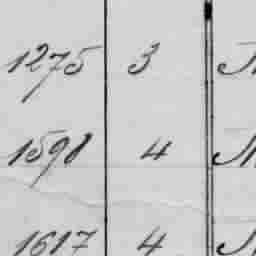 1275 3
1598 4
1617 4